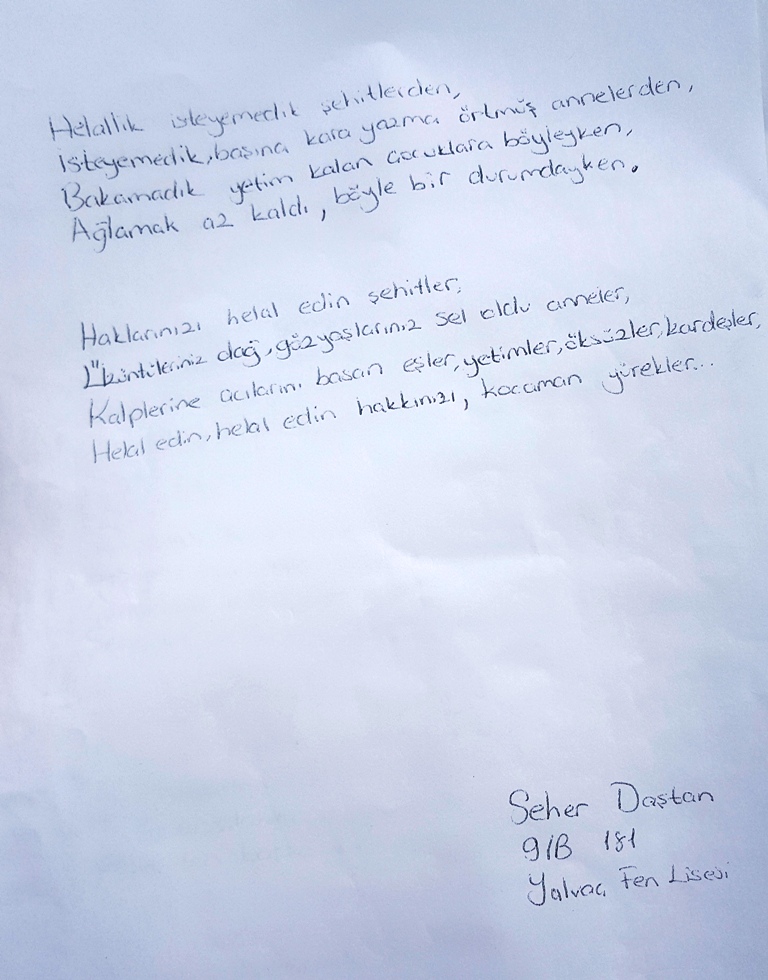 Helallik isteyemedik şehitlerden,
İsteyemedik, başına kara yazma örtmüş annelerden,
Bakamadık yetim kalan çocuklara böyleyken,
Ağlamak az kaldı, böyle bir durumdayken.
Haklarınızı helal edin şehitler,
Üzüntüleriniz dağ, gözyaşlarınız sel oldu anneler,
Kalplerine acılarını basan eşler, yetimler, öksüzler, kardeşler,
Helal edin, helal edin hakkınızı, kocaman yürekler...
Seher Daştan
9/B 181
Yalvaç Fen Lisesi